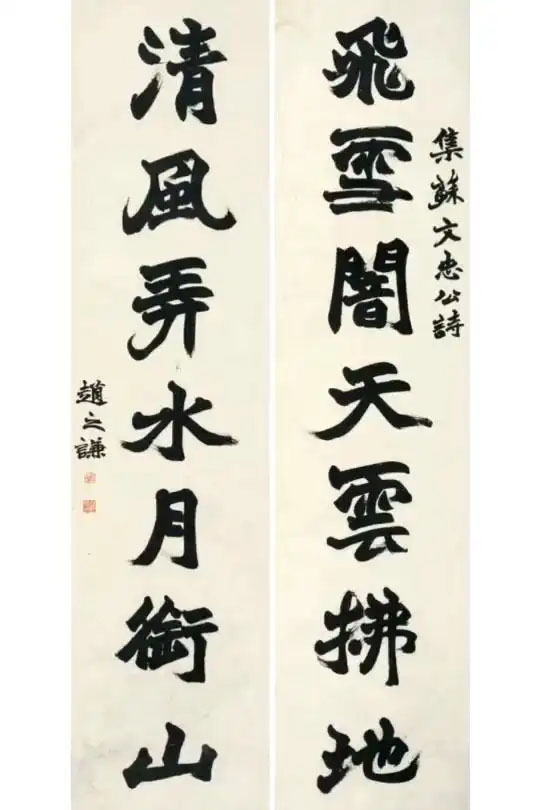 集蘇文忠公詩
飛雪闇天雲拂地
清風弄水月銜山
趙之謙